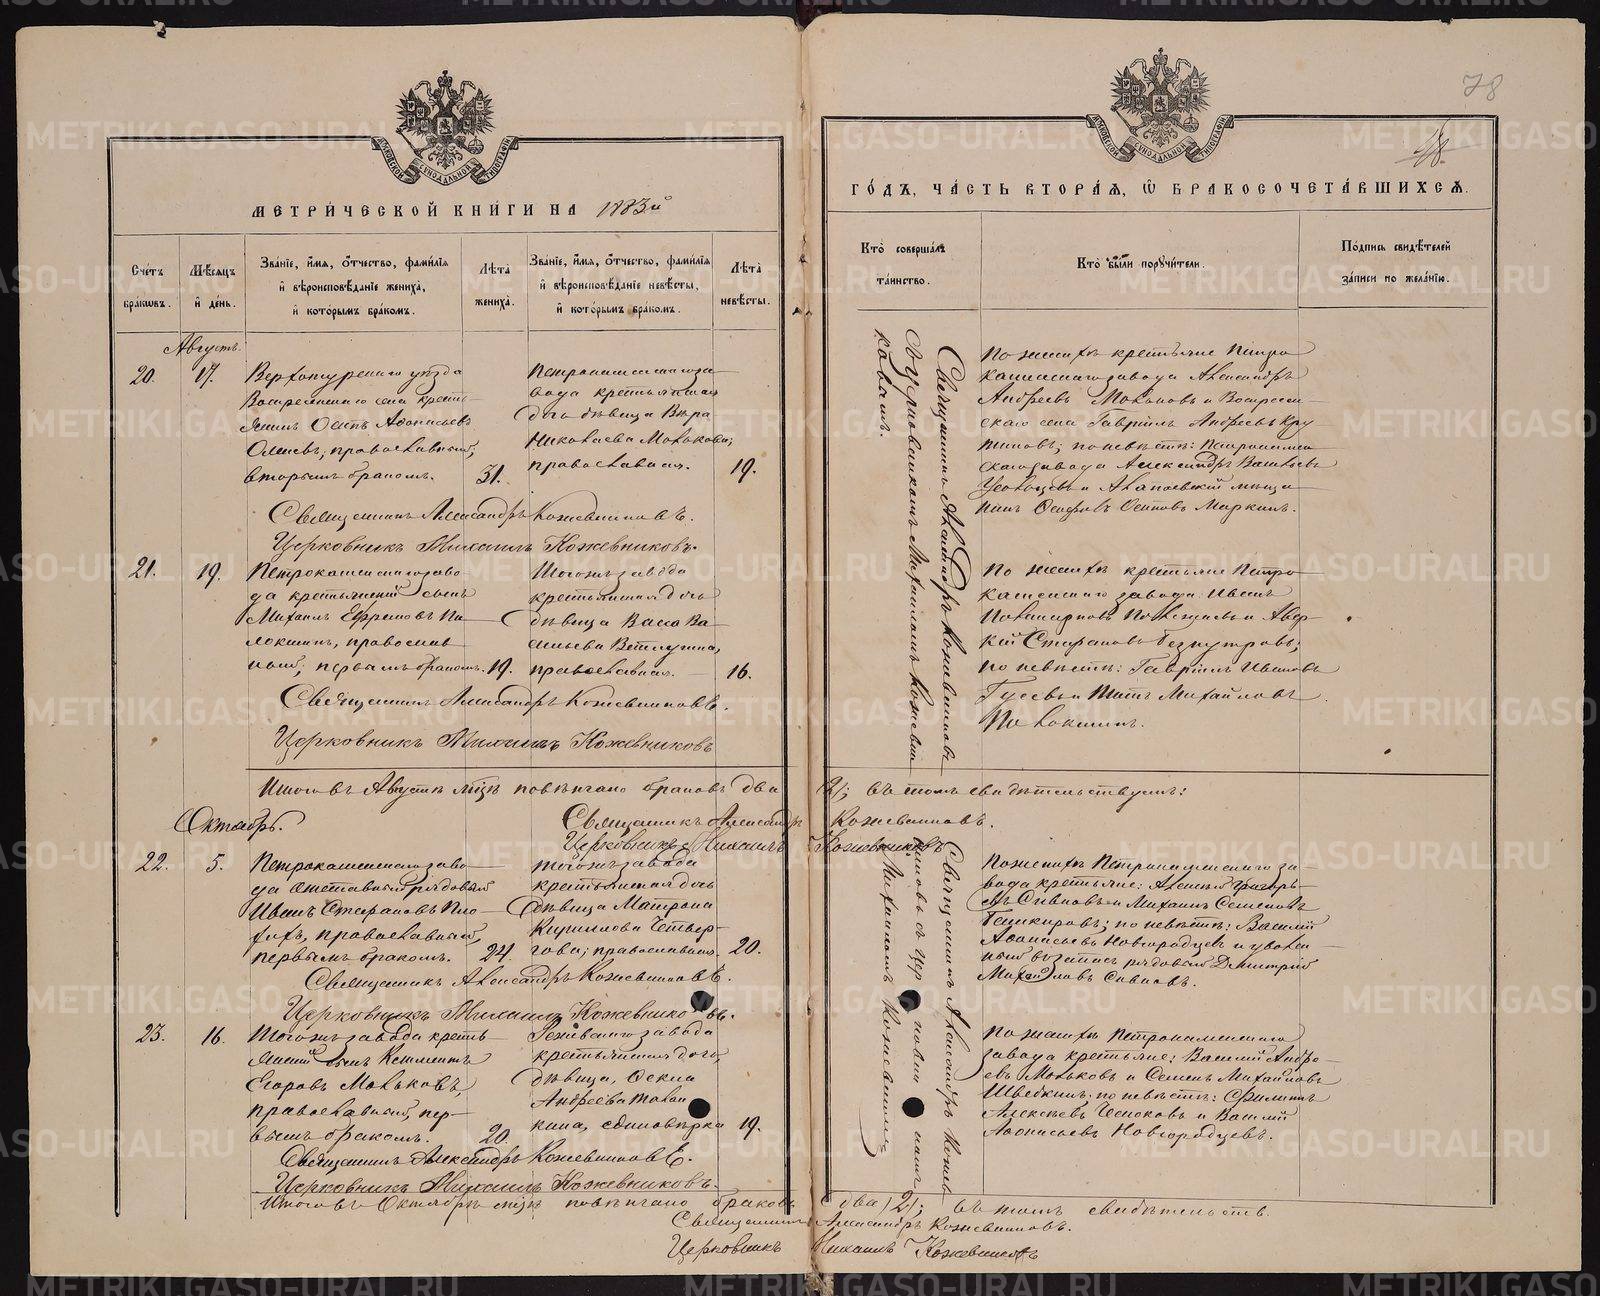 МЕТРИ́ЧЕСКОЙ КНИ́ГИ НА 1883й
Сче́тъ бра́ковъ.
Мѣ́сяцъ и҆ де́нь.
Зва́нїе, и҆́мя, ѻ҆́тчество, фами́лїя и҆ вѣроисповѣ́данїе жениха̀, и҆ кото́рымъ бра́комъ.
Лѣ́та жениха̀.
Зва́нїе, и҆́мя, ѻ҆́тчество, фами́лїя и҆ вѣроисповѣ́данїе невѣ́сты, и҆ кото́рымъ бра́комъ.
Лѣ́та невѣ́сты.
Августъ.
20.
17.
Верхотурскаго уѣзда
Воскресенскаго села кресть-
янинъ Осипъ Афонасьевъ
православный,
вторымъ бракомъ.
31.
Петрокаменскаго за-
вода крестьянская
дочь дѣвица Вѣра
Николаева Молокова;
православная.
19.
Священникъ Александръ Кожевниковъ.
Церковникъ Михаилъ Кожевниковъ.
21.
19.
Петрокаменскаго заво-
да крестьянскій сынъ
Михаилъ Ефремовъ Па-
локшинъ, православ
ный, первымъ бракомъ.
19.
Тогожъ завода
крестьянская дочь
дѣвица Васса Ва-
сильева Ветлугина,
православная.
16.
Священникъ Александръ Кожевниковъ.
Церковникъ Михаилъ Кожевниковъ
Итого въ Августѣ мцѣ повѣнчано браковъ два
Священникъ Александръ
Церковникъ Михаилъ
Октябрь.
22.
5.
Петрокаменскаго заво-
да отставный рядовый
Иванъ Стефановъ Пло-
хихъ, православный,
первымъ бракомъ.
24.
Тогожъ завода
крестьянская дочь
дѣвица Матрона
Кирилова Четвер-
гова; православная.
20.
Священникъ Александръ Кожевниковъ.
Церковникъ Михаилъ Кожевниковъ.
23.
16.
Тогожъ завода кресть-
янскій сынъ Климентъ
Егоровъ Мальковъ,
православный, пер-
вымъ бракомъ.
20.
завода
крестьянская дочь,
дѣвица,
Андреева
кина, единовѣрка
19.
Священникъ Александръ Кожевниковъ.
Церковникъ Михаилъ Кожевниковъ.
Итого въ Октябрѣ мцѣ повѣнчано браковъ
Священникъ
Церковникъ
78
ГО́ДЪ, ЧА́СТЬ ВТОРА́Я, Ѡ҆ БРАКОСОЧЕТА́ВШИХСЯ.
Кто̀ соверша́лъ та́инство.
Кто̀ бы́ли поручи́тели.
По́дпись свидѣ́телей за́писи по жела́нїю.
Священникъ Александръ Кожевниковъ
съ церковникомъ Михаиломъ Кожевни
ковымъ.
По женихѣ крестьяне Петро
каменскаго завода Александръ
Андреевъ Мальковъ и Воскресен-
скаго села Гавріилъ Андреевъ Кру
тиковъ; по невѣстѣ: Петрокамен
скаго завода Александръ Васильевъ
и Алапаевскій мѣща
нинъ Осиповъ Маркинъ.
По женихѣ крестьяне Петро
каменскаго завода Иванъ
и Авер-
кій Стефановъ
по невѣстѣ: Гавріилъ Ивановъ
Гусевъ и Титъ Михайловъ
Палокшинъ.
2); въ томъ свидѣтельствуемъ:
Кожевниковъ.
Кожевниковъ
Священникъ Александръ Кожев
никовъ съ церковникомъ
Михаиломъ Кожевниковымъ
По женихѣ Петрокаменскаго за-
вода крестьяне: Алексей Григорь-
евъ Сивковъ и Михаилъ Семеновъ
Башкировъ; по невѣстѣ: Василій
Афонасьевъ Новгородцевъ и уволен-
ный въ запасъ рядовый Дмитрій
Михайловъ Сивковъ.
По женихѣ Петрокаменскаго
завода крестьяне: Василій Андре-
евъ Мальковъ и Семенъ Михайловъ
Шведкинъ; по невѣстѣ: Филиппъ
Алексѣевъ Чесноковъ и Василій
Афонасьевъ Новгородцевъ.
два (2); въ томъ свидѣтельств.
Александръ Кожевниковъ.
Михаилъ Кожевниковъ
METRIKI.GASO-URAL.RU